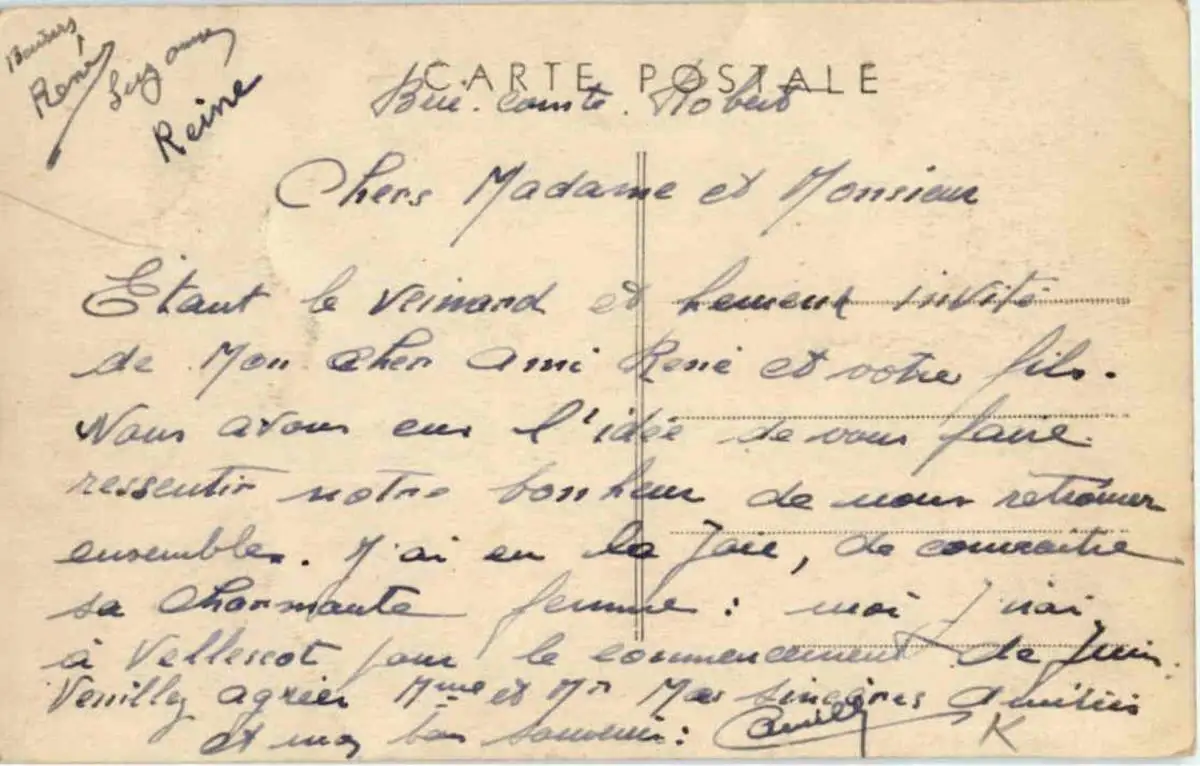 Baisers
René
Suzanne
Reine
CARTE POSTALE
Brie. comte. Robert
Chers Madame et Monsieur
Etant le veinard et invité
de Mon cher ami René et votre fils.
Nous avons eus l'idée de vous faire
ressentir notre bonheur de nous retrouver
ensembles. J'ai eu la Joie, de connaitre
sa charmante femme : moi j'irai
à Vellescot pour le commencement de Juin.
Veuilley agrées Mme et Mr Mes sincères Amitiés
et mes bon souvenir : Camille
K